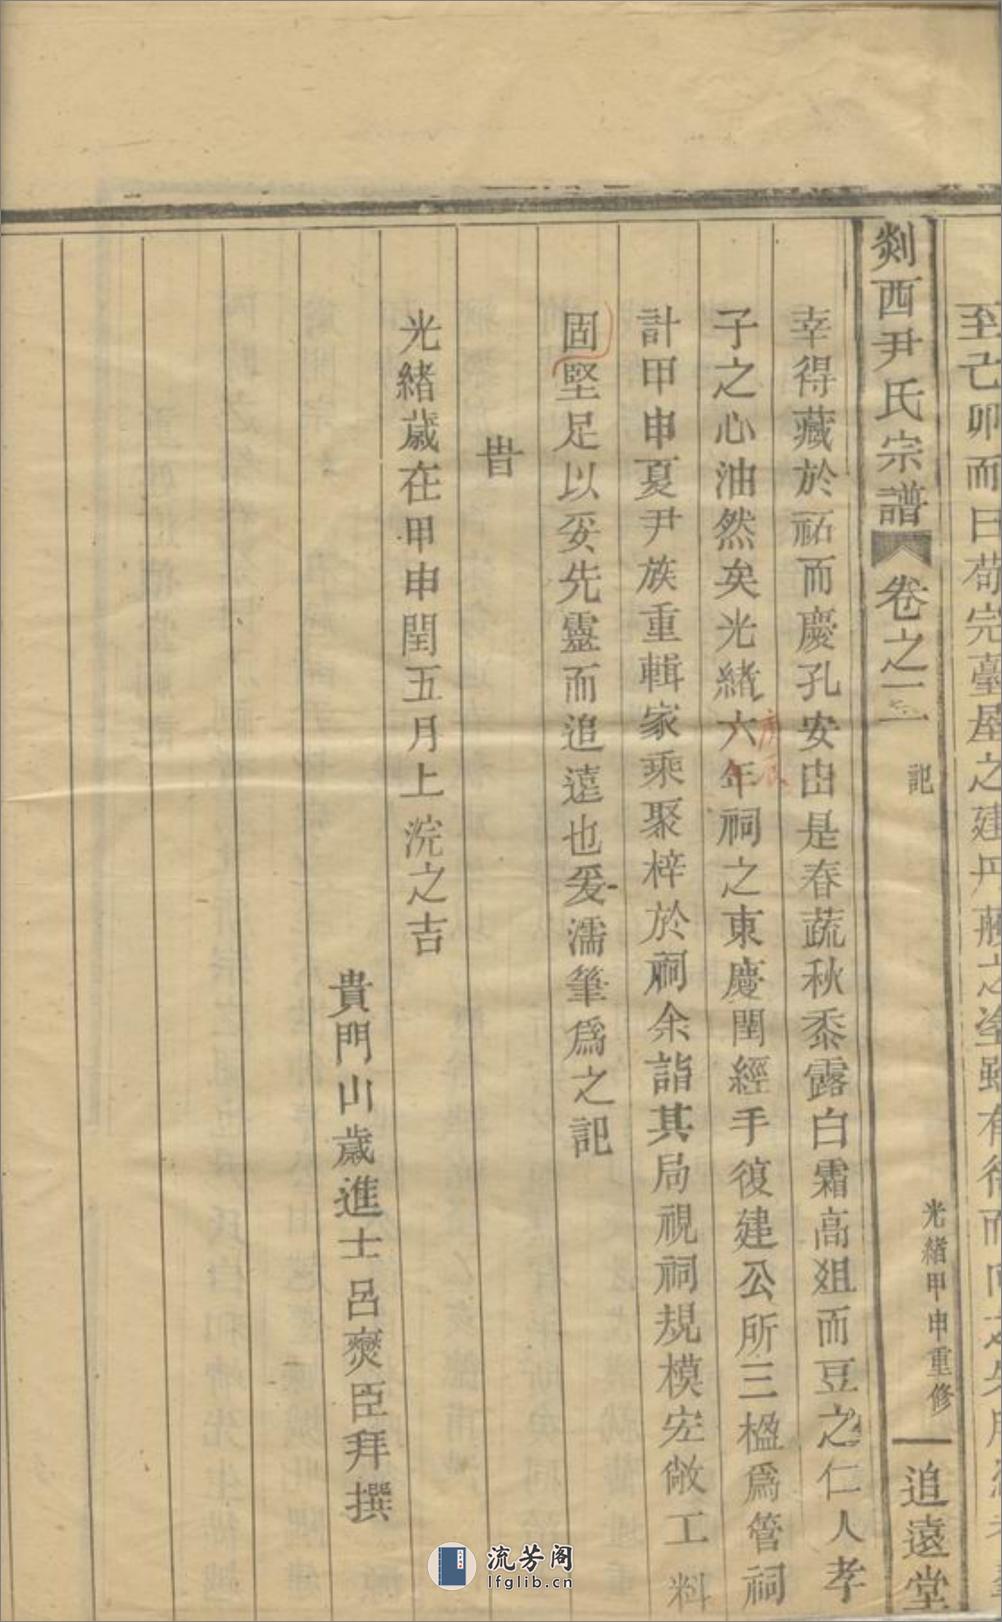 至己卯而曰苟完臺星之建丹雘之塗雖有
剡西尹氏宗譜 卷之二 記 光緒甲申重修 追遠堂
幸得藏於祏而慶孔安由是春蔬秋黍露白霜高俎而豆之仁人孝
子之心油然矣光緒六年祠之東慶閏經手復建公所三楹爲管祠
庚辰
計甲申夏尹族重輯家乘聚梓於祠余詣其局視祠規模宏敞工料
固堅足以妥先靈而追遠也爰濡筆爲之記
旹
光緒歲在甲申閏五月上浣之吉
貴門山歲進士呂奕臣拜撰
流芳阁
lfglib.cn